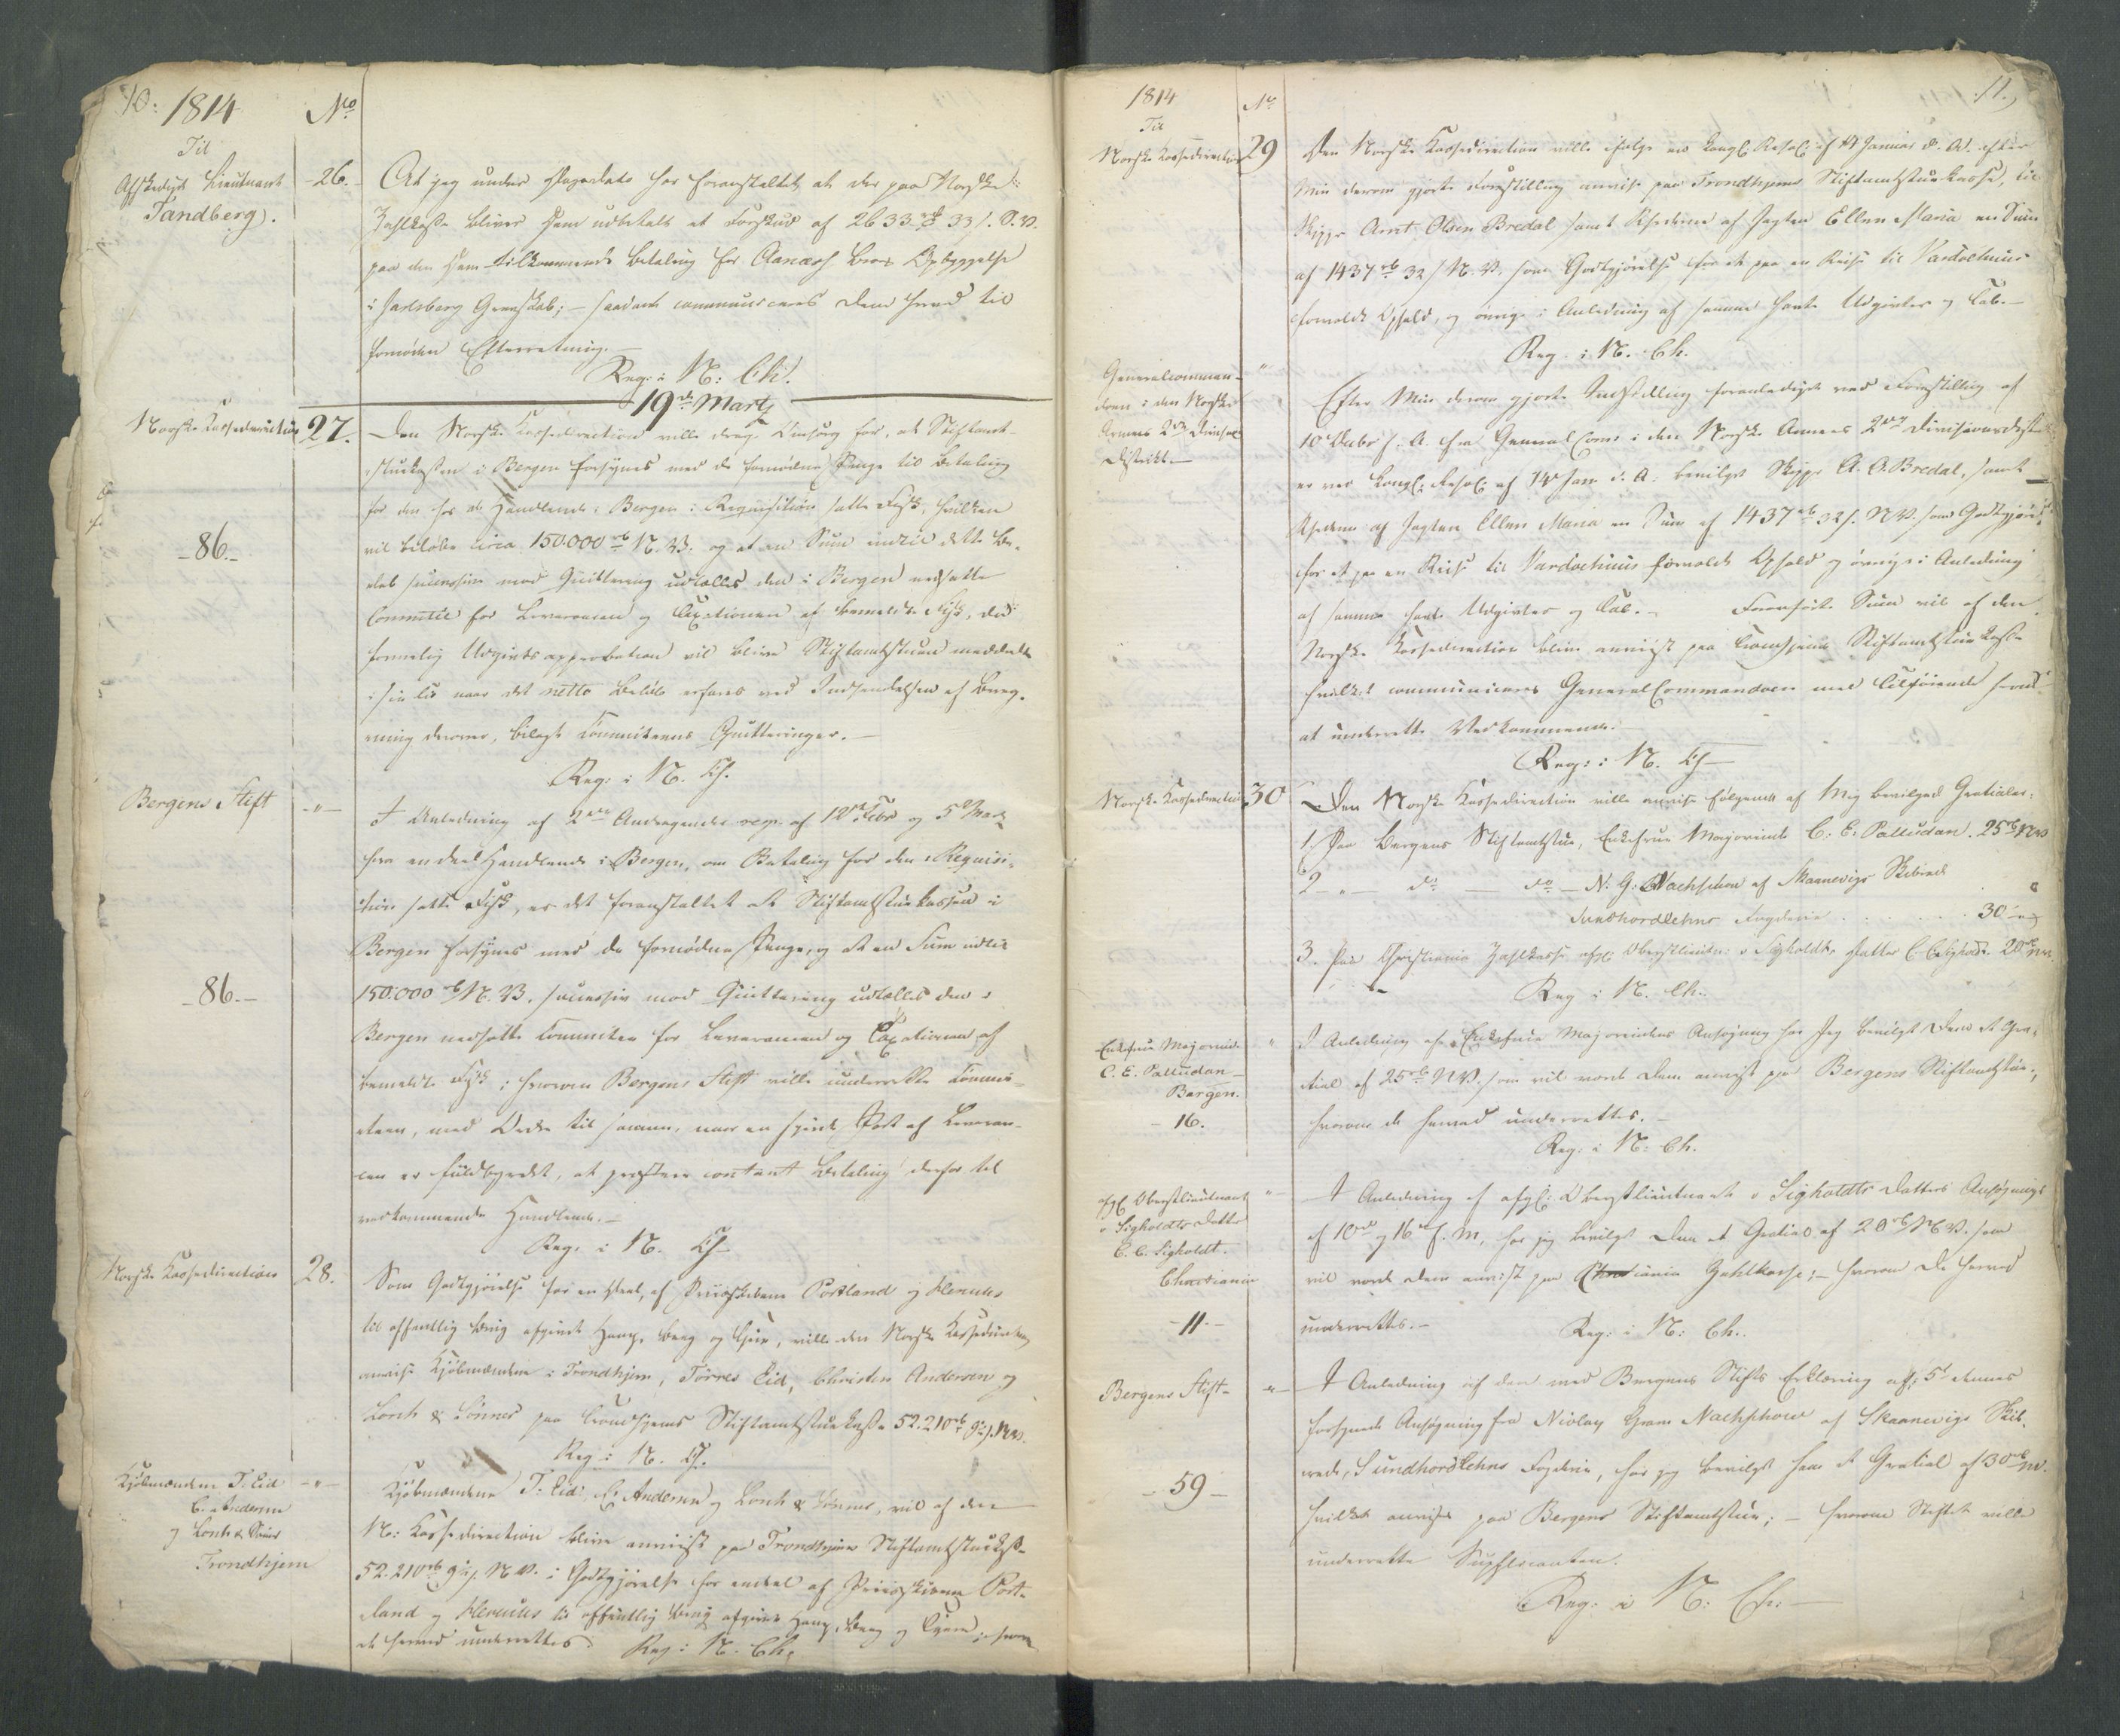 10. 1814
No
Til
Afskediget Lieutnant
Tandberg.
26.
At jeg under Dagsdato har foranstaltet at der paa Norske
Zahlkasse bliver Dem udbetalt et Forskud af 2633 rb 33 s. S.V.
paa den Dem tilkommende Betaling for Aanæs Broes Opbyggelse
i Jarlsberg Grevskab; – saadant communiceres Dem herved til
fornøden Efterretning. –
Reg: i N: Ch:
19de Marty
Norske Kassedirection
27.
Den Norske Kassedirection ville drage Omsorg for, at Stiftamt-
stuekassen i Bergen forsynes med de fornødne Penge til Betaling
for den hos de Handlende i Bergen i Requisition satte Fisk, hvilken
- 86. -
vil beløbe circa 150.000 rb N.V. og at en Sum indtil dette Be-
løb successive mod Quittering udtælles den i Bergen nedsatte
Committee for Leverancen og Taxationen af bemeldte Fisk, da
formelig Udgivts approbation vil blive Stiftamtstuen meddeelt
i sin Tid naar det netto Beløb erfares ved Indsendelsen af Bereg-
ning derover, bilagt Committeens Quitteringer. –
Reg: i N. Ch.
Bergens Stift
- " -
I Anledning af 2de Andragender af 12te Febr og 5te Marty
fra endeel Handlende i Bergen, om Betaling for den i Requisi-
tion satte Fisk, er det foranstaltet at Stiftamtstuekassen i
Bergen forsynes med de fornødne Penge, og at en Sum indtil
- 86. -
150.000 rb N.V. successive mod Quittering udtælles den i
Bergen nedsatte Committee for Leverancen og Taxationen af
bemeldte Fisk; hvorom Bergens Stift ville underrette Commi-
teen, med Ordre til samme, naar en Post af Leveran-
cen er fuldbyrdet, at præstere contant Betaling derfor til
vedkommende Handlende. –
Reg: i N. Ch
Norske Kassedirection
28.
Som Godtgjørelse for en Deel, af Priisskibene Portland og Hercules
til offentlig Brug afgivet Hamp, Beeg og Tjære, ville den Norske Kassedirection
anvise Kjøbmændene i Trondhjem, Torres Eid, Christen Andersen og
Lorch & Sønner paa Trondhjems Stiftamtstuekasse 52.210 rb 9 s. NV.
Reg: i N. Ch.
Kjøbmændene T. Eid
C. Andersen
og Lorch & Sønner
Trondhjem
- " -
Kjøbmændene T. Eid, C. Andersen og Lorch & Sønner, vil af den
N: Kassedirection blive anviist paa Trondhjems Stiftamtstuekasse
52.210 rb 9 s. N.V. i Godtgjørelse for endeel af Priisskibene Port-
land og Hercules til offentlig Brug afgivet Hamp, Beeg og Tjære; hvorom
de herved underrettes. Reg: i N. Ch.
11.
1814
No
Til
Norske Kassedirection
29
Den Norske Kassedirection ville ifølge en Kongl. Resol. af 14 Januar d. A. efter
Min derom gjorte Forestilling anvise paa Trondhjems Stiftamtstuekasse, til
Skipper Arnt Olsen Bredal samt Rhederne af Jagten Ellen Maria en Sum
af 1437 rb 32 s N.V. som Godtgjørelse for et paa en Reise til Vardoehuus
forvoldt Ophold, og øvrige i Anledning af samme havte Udgivter og Tab. –
Reg. i N. Ch.
Generalcomman-
doen i den Norske
Armees 2det Divisions
District. –
"
Efter Min derom gjorte Indstilling foranlediget ved Forestilling af
10 Decbr f. A. fra General Com: i den Norske Armees 2det Divisions District
er ved Kongl. Resol. af 14 Jan: d. A. bevilget Skipper A. O. Bredal, samt
Rhederne af Jagten Ellen Maria en Sum af 1437 rb 32 s. N.V. som Godtgjørelse
for et paa en Reise til Vardoehuus forvoldt Ophold og øvrige i Anledning
af samme havte Udgivter og Tab. – Foranførte Sum vil af den
Norske Kassedirection blive anviist paa Trondhjems Stiftamtstue Kasse
hvilket communiceres GeneralCommandoen med Tilføiende herom
at underrette Vedkommende. –
Reg: i N. Ch –
Norske Kassedirection
30
Den Norske Kassedirection ville anvise følgende af Mig bevilgede Gratialer:
1. Paa Bergens Stiftamtstue, Enkefrue Majorinde C: E: Palludan. 25 rb NV
2 - " - do - do - N: G: Nachschow af Skaanevigs Skibrede
Sundhordlehns Fogderie . . . . . . 30 -
3. Paa Christiania Zahlkasse afg: Oberstlieutn: v Sigholdts Datter C. C. Sigholdt. 20 rb NV.
Reg i N. Ch.
Enkefrue Majorinde
C. E. Palludan
Bergen.
16.
"
I Anledning af Enkefrue Majorindens Ansøgning har Jeg bevilget Dem et Gra-
tial af 25 rb N.V. som vil vorde Dem anviist paa Bergens Stiftamtstue,
hvorom de herved underrettes. –
Reg: i N: Ch.
afg: Oberstlieutnant
v Sigholdts Datter
C. C. Sigholdt.
Christiania
- 11. -
"
I Anledning af afg: Oberstlieutnant v Sigholdts Datters Ansøgninger
af 10de og 16de f. M, har jeg bevilget Dem et Gratial af 20 rb N.V. som
vil vorde Dem anviist paa Christiania Zahlkasse; – hvorom De herved
underrettes. –
Reg: i N: Ch.
Bergens Stift -
- " -
I Anledning af den med Bergens Stifts Erklæring af 5te dennes
forsynede Ansøgning fra Nicolay Gram Nachschow af Skaanevigs Skib-
- 59 -
rede, Sundhordlehns Fogderie, har jeg bevilget ham et Gratial af 30 rb NV.
hvilket anvises paa Bergens Stiftamtstue; – hvorom Stiftet ville
underrette Supplicanten.
Reg: i N: Ch: –